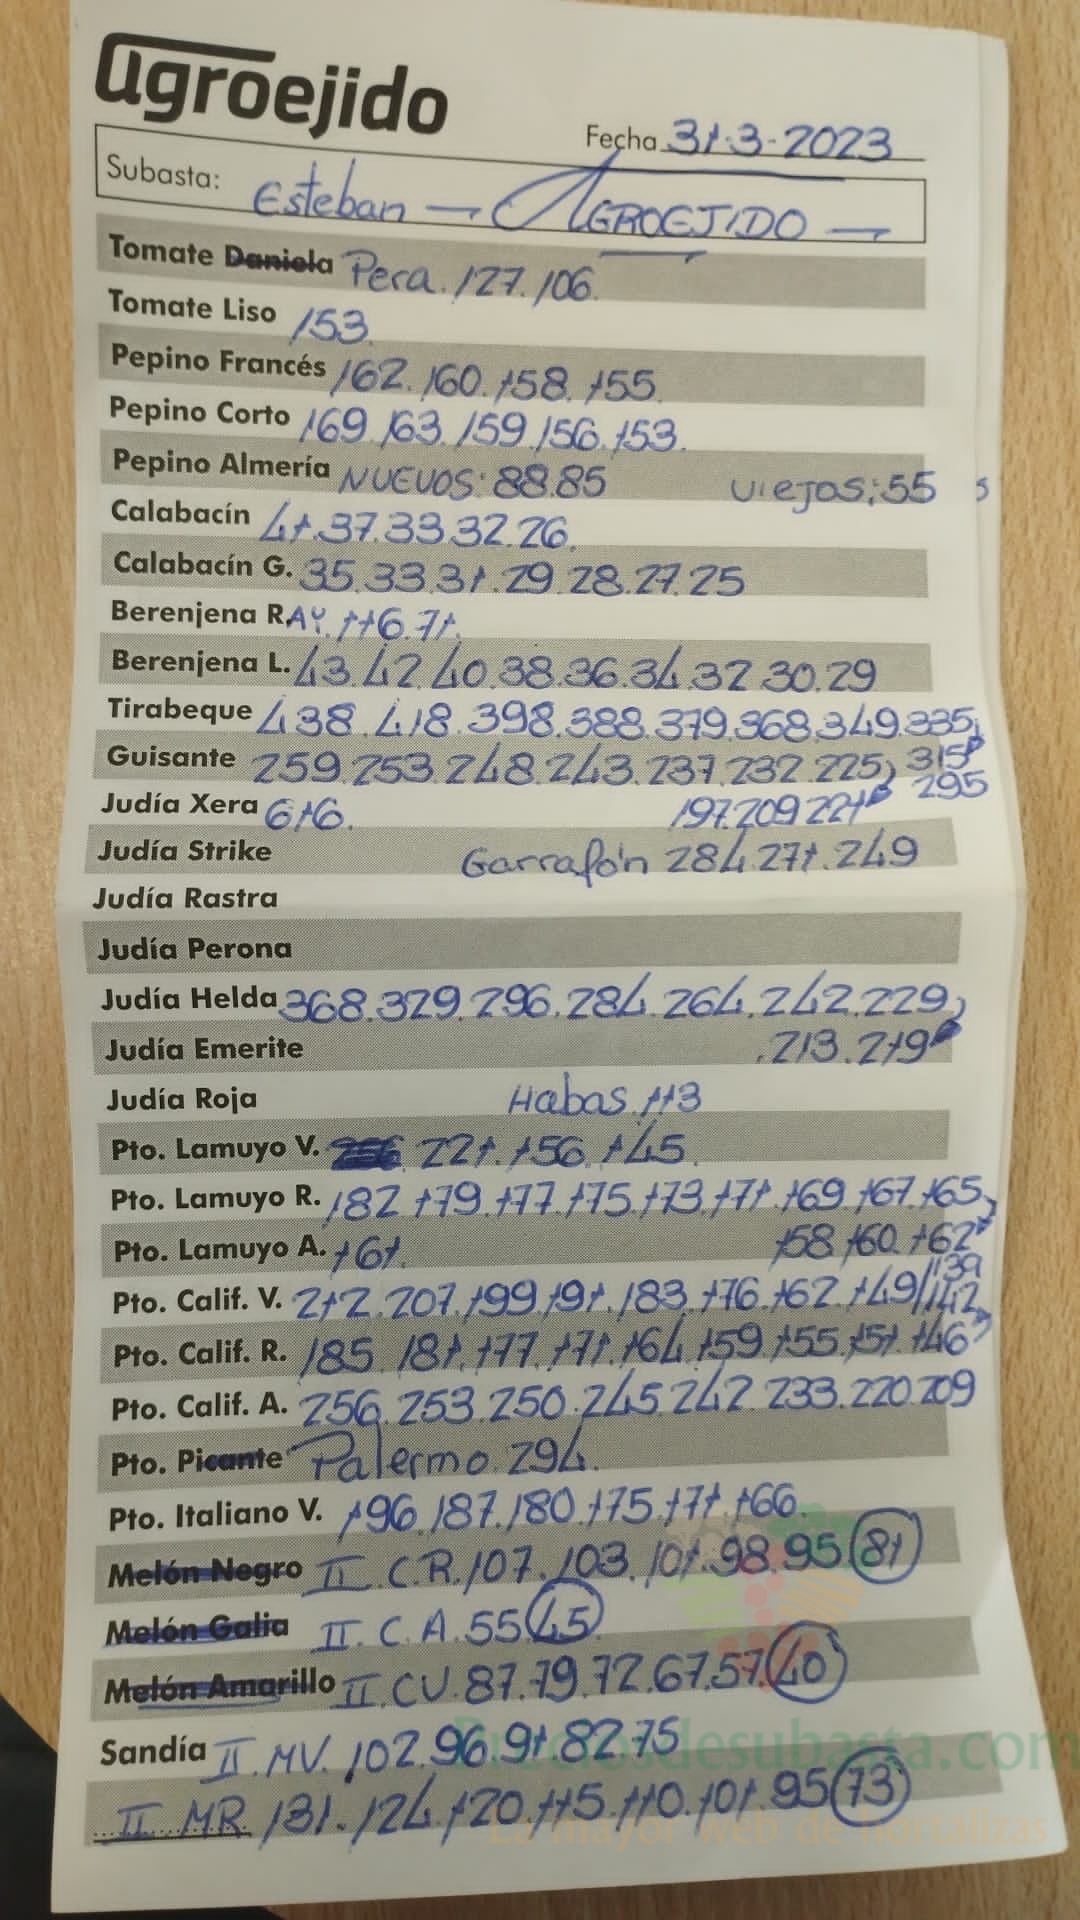 agroejido
Fecha 31-3-2023
Subasta: Esteban — AGROEJIDO —
Tomate Daniela Pera. 127. 106.
Tomate Liso 153.
Pepino Francés 162. 160. 158. 155.
Pepino Corto 169. 163. 159. 156. 153.
Pepino Almería NUEVOS: 88.85 Viejos: 55 s
Calabacín 41.37.33.32.26.
Calabacín G. 35.33.31.29.28.27.25
Berenjena R. AY. 116.71.
Berenjena L. 43.42.40.38.36.34.32.30.29
Tirabeque 438.418.398.388.379.368.349.335,
Guisante 259.253.248.243.237.232.225, 315
295
Judía Xera 616. 197.209.221
Judía Strike Garrafón 284.271.249
Judía Rastra
Judía Perona
Judía Helda 368.329.296.284.264.242.229,
Judía Emerite .213.219
Judía Roja Habas. 113
Pto. Lamuyo V. 221. 156. 145.
Pto. Lamuyo R. 182.179.177.175.173.171.169.167.165,
Pto. Lamuyo A. 161. 158.160.162
139
Pto. Calif. V. 212.207.199.191.183.176.162.149/142,
Pto. Calif. R. 185.181.177.171.164.159.155.151.146
Pto. Calif. A. 256.253.250.245.242.233.220.209
Pto. Picante Palermo. 294.
Pto. Italiano V. 196.187.180.175.171.166.
Melón Negro II. C.R. 107. 103. 101. 98.95.81
Melón Galia II. C.A. 55.45
Melón Amarillo II. CV. 87.79.72.67.57.40
Sandía II. MV. 102.96.91.82.75
II. MR 131. 124.120.115.110.101.95 73
Preciosdesubasta.com
La mayor web de hortalizas